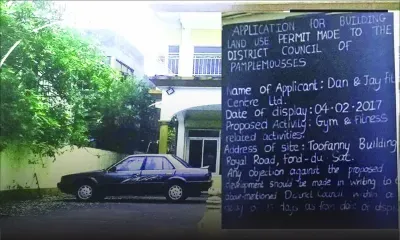 APPLICATION FOR BUILDING
LAND USE PERMIT MADE TO THE
DISTRICT COUNCIL OF
PAMPLEMOUSSES
Name of Applicant: Dan & Jay fit
Centre Ltd.
Date of display: 04-02-2017
Proposed Activity: Gym & Fitness
related activities.
Address of site: Toofanny Building
Royal Road, Fond-du Sac.
Any objection against the proposed
development should be made in writing to
above-mentioned District Council within